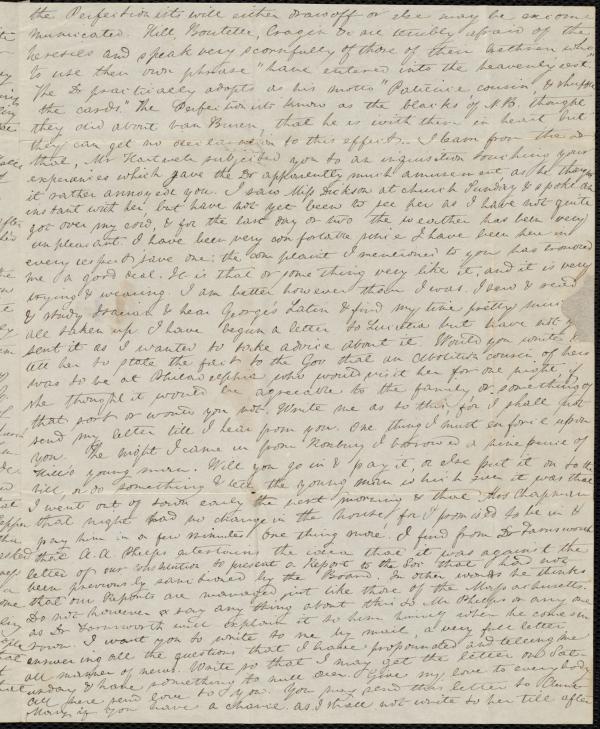 the Perfectionists will either draw off or else may be excom-
municated. Hill, Boutelle, Cragin &c are terribly afraid of the
heresies and speak very scornfully of those of their brethren who
to use their own phrase "have entered into the heavenly rest"
The Dr practically adopts as his motto "Patience, cousin, & shuffle
the cards." The Perfectionists know as the blacks of N.B. thought
they did about Van Buren, that he is with them in heart but
they can get no declaration to this effect. I learn from the Dr
that Mr subjected you to an inquisition touching your
experiences which gave the Dr apparently much amusement as he thought
it rather annoyed you. I saw Miss Dickson at church Sunday & spoke an
instant with her but have not yet been to see her as I have not quite
got over my cold, & for the last day or two the weather has been very
unpleasant. I have been very comfortable since I have been here in
every respect save one: the complaint I mentioned to you has troubled
me a good deal. It is that or something very like it, and it is very
trying & wearing. I am better however than I was. I sew & read
& study & hear George's Latin & find my time pretty much
all taken up. I have begun a letter to Lucretia but have not
sent it as I wanted to take advice about it. Would you write &
tell her to state the fact to the Gov that an Abolition cousin of hers
was to be at Philadelphia who would visit her for one night, if
she thought it would be agreeable to the family or something of
that sort or would you not. Write me as to this, for I shall not
send my letter till I hear from you. One thing I must enforce upon
you. The night I came in from Roxbury I borrowed a ninepence of
Hill's young man. Will you go in & pay it, or else put it on to the
bill, or do something & tell the young man which it was that
I went out of town early the next morning & that Mrs Chapman
that night had no change in the house, for I promised to be in &
pay him in a few minutes. One thing more. I find from Dr Farnsworth
that A. A. Phelps entertains the idea that it was against the
letter of our constitution to present a Report to the Soc that had not
been previously sanctioned by the Board. In other words he thinks
that our Reports are managed just like those of the Massachusetts.
Do not however say any thing about this to Mr Phelps or any one
as Dr Farnsworth will explain it to him when he comes in
town. I want you to write to me by mail, a very full letter
answering all the questions that I have propounded and telling me
all manner of news. Write so that I may get the letter on Sat-
urday & have something to muse over. Give my love to everybody
all here send love to you. You may send this letter to Anne
Mary if you have a chance. as I shall not write to her till after